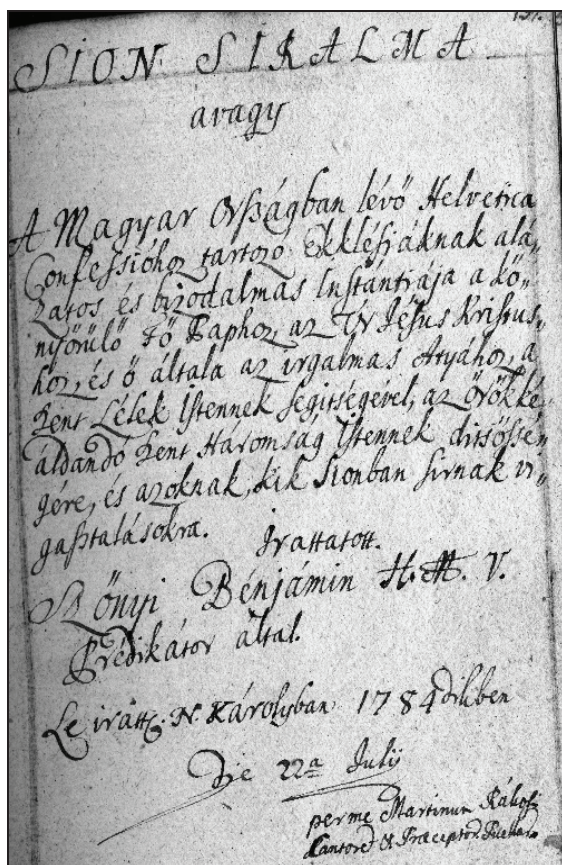 151.
SION SIRALMA
avagy
A Magyar Orßágban lévő Helvetica
Confessióhoz tartozo Ekklésiáknak alá„
zatos és bizodalmas Instantiája a kö„
nyörülő Fő Paphoz, az Úr Jésus Kristus„
hoz, és ő általa az irgalmas Atyához, a
Szent Lélek Istennek segitségével, az örökké
áldandó Szent Háromság Istennek ditsősse„
gére, és azoknak, kik Sionban sirnak vi„
gaßtalásokra.
Irattatott.
Szőnyi Bénjámin H. M. V.
Prédikátor által.
Le iratt. N. Károlyban 1784dikben
Die 22a Julij
perme Martinum
Cantore et Præceptor.